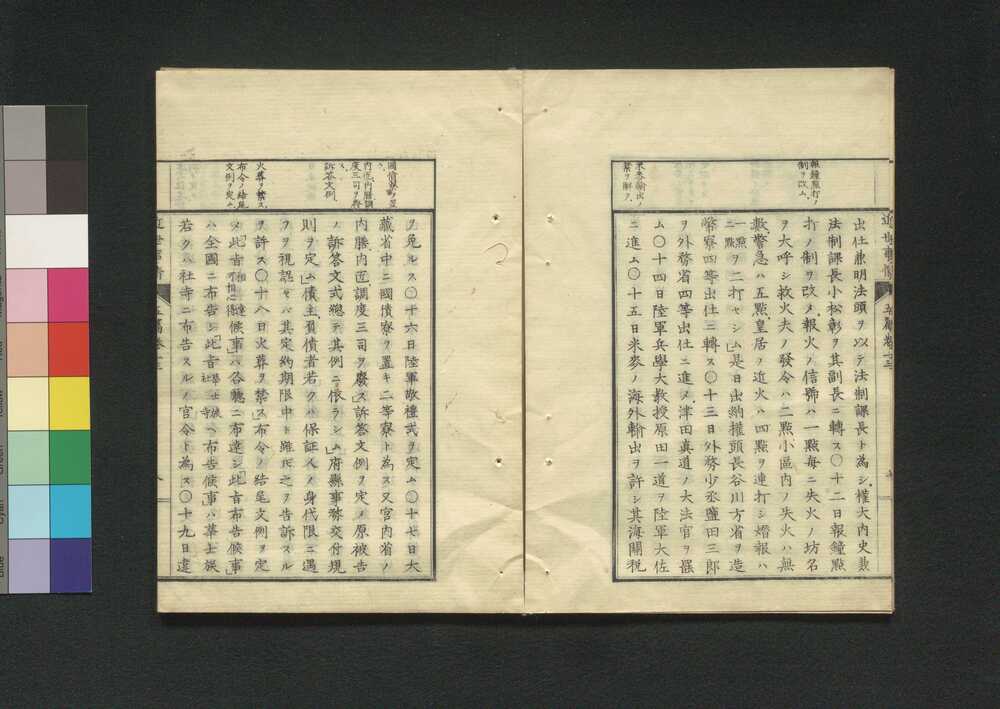 報鐘點打ノ
制ヲ改ム
米麥輸出ノ
禁ヲ解ク
出仕兼明法頭ヲ以テ法制課長ト為シ權大內史兼
法制課長小松彰ヲ其副長ニ轉ス〇十二日報鐘點
打ノ制ヲ改メ報火ノ信號ハ一點每ニ失火ノ坊名
ヲ大呼シ救火夫ノ發令ハ二點小區內ノ失火ハ無
數警急ハ五點皇居ヲ近火ハ四點ヲ連打シ熸報ハ
一點ヲ二打セシム是日出納權頭長谷川方省ヲ造
幣寮四等出仕ニ轉ス〇十三日外務少丞鹽田三郎
ヲ外務省四等出仕ニ進メ津田真道ノ大法官ヲ罷
ム〇十四日陸軍兵學大教授原田一道ヲ陸軍大佐
ニ進ム〇十五日米麥ノ海外輸出ヲ許シ其海關稅
國債寮ヲ置
內匠內膳調
度三司ヲ廢
ス
訴答文例
火葬ヲ禁ス
布令ノ結尾
文例ヲ定ム
ヲ免ルス〇十六日陸軍敬禮式ヲ定ム〇十七日大
藏省中ニ國債寮ヲ置キ二等寮ト為ス又宮內省ノ
內膳內匠調度三司ヲ廢ス訴答文例ヲ定メ原被告
ノ訴答文式總テ其例ニ依ラシム府縣事務交付規
則ヲ定ム債主負債者若クハ保証人ノ身代限ニ遇
フヲ視認セバ其定約期限中ト雖𪜈之ヲ告訴スル
ヲ許ス〇十八日火葬ヲ禁ス布令ノ結尾文例ヲ定
メ此旨相達候事ハ各廳ニ布達シ此旨布告候事
ハ全國ニ布告シ此旨華士族社寺ヘ布告候事ハ華士族
若クハ社寺ニ布告スルノ官令ト為ス〇十九日違